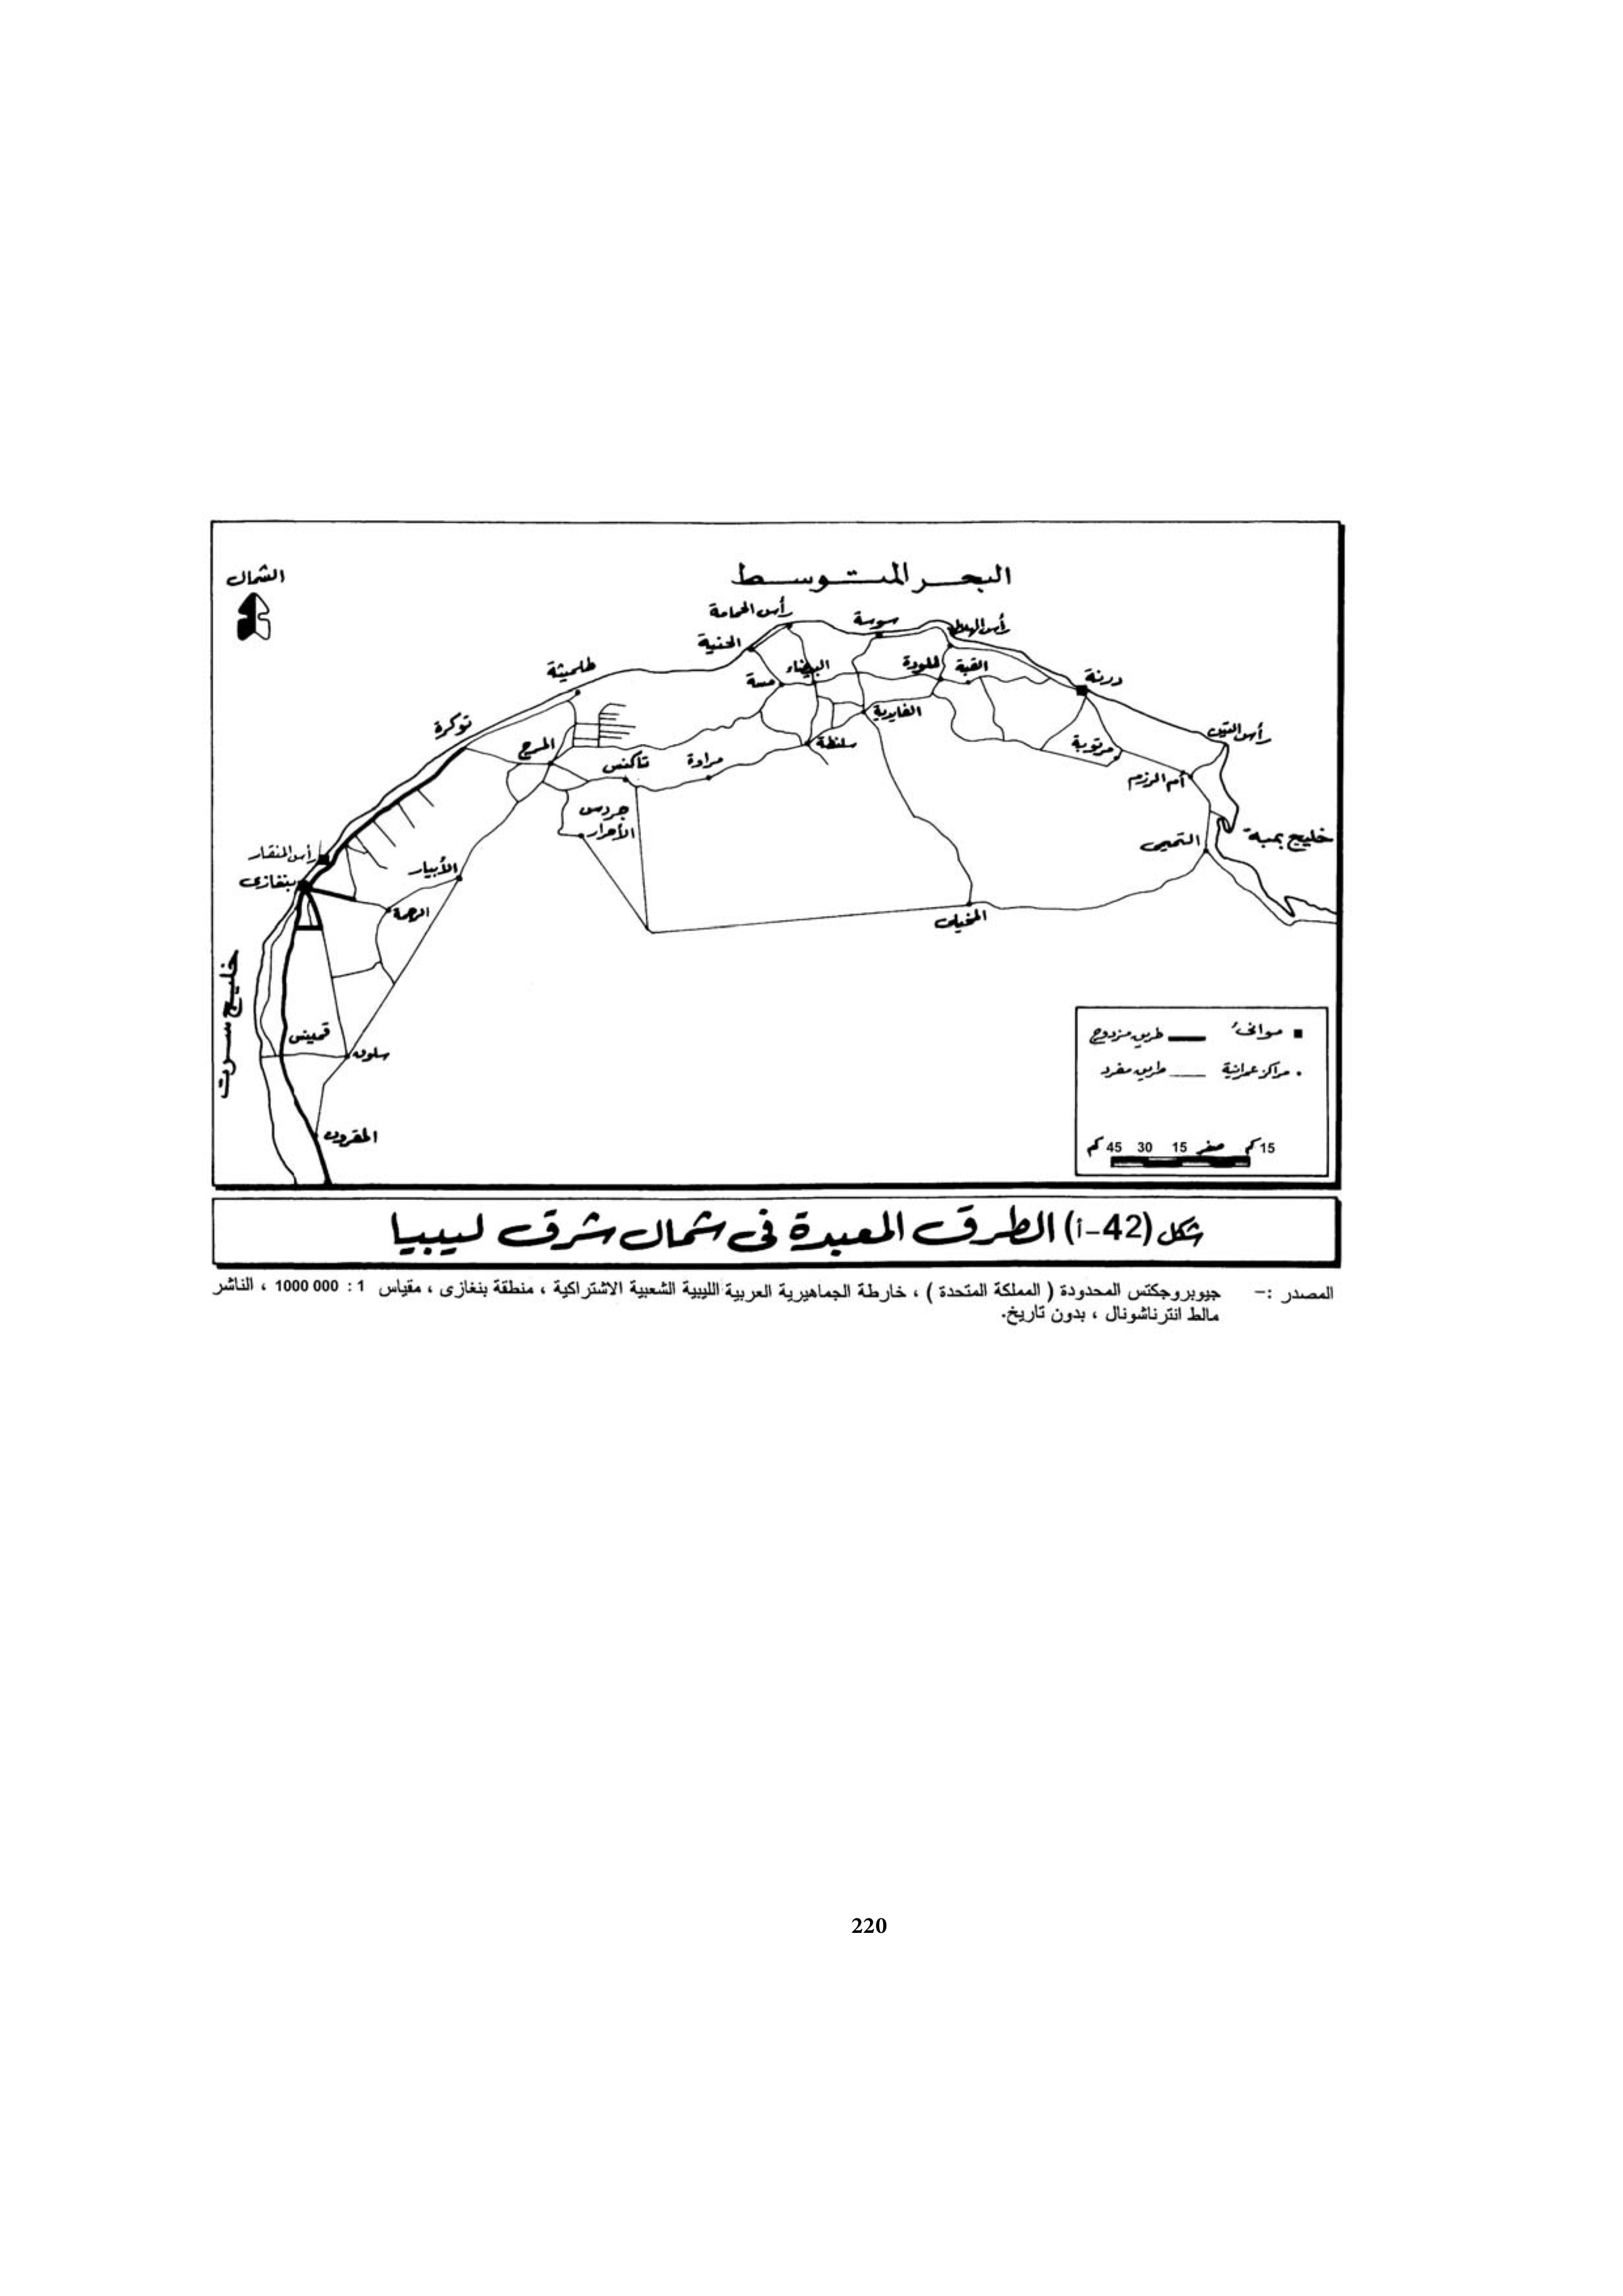 البحر المتوسط
الشمال
رأس الحمامة
سوسة
رأس الهلال
الحنية
البيضاء
لملودة
القبة
طلميثة
مسة
درنة
توكرة
الفايدية
رأس التين
المرج
سلنطة
مرتوبة
تاكنس
مراوة
أم الرزم
جردس
الأحرار
خليج بمبة
التميمى
رأس المنقار
الأبيار
بنغازى
الرجمة
المخيلى
خليج سرت
قمينس
سلوق
المقرون
موانئ
طريق مزدوج
مراكز عمرانية
طريق مفرد
15 كم صفر 15 30 45 كم
شكل (42-أ) الطرق المعبدة فى شمال شرق ليبيا
المصدر :- جيوبروجكتس المحدودة ( المملكة المتحدة ) ، خارطة الجماهيرية العربية الليبية الشعبية الاشتراكية ، منطقة بنغازى ، مقياس 1 : 000 1000 ، الناشر
مالط انترناشونال ، بدون تاريخ.
220